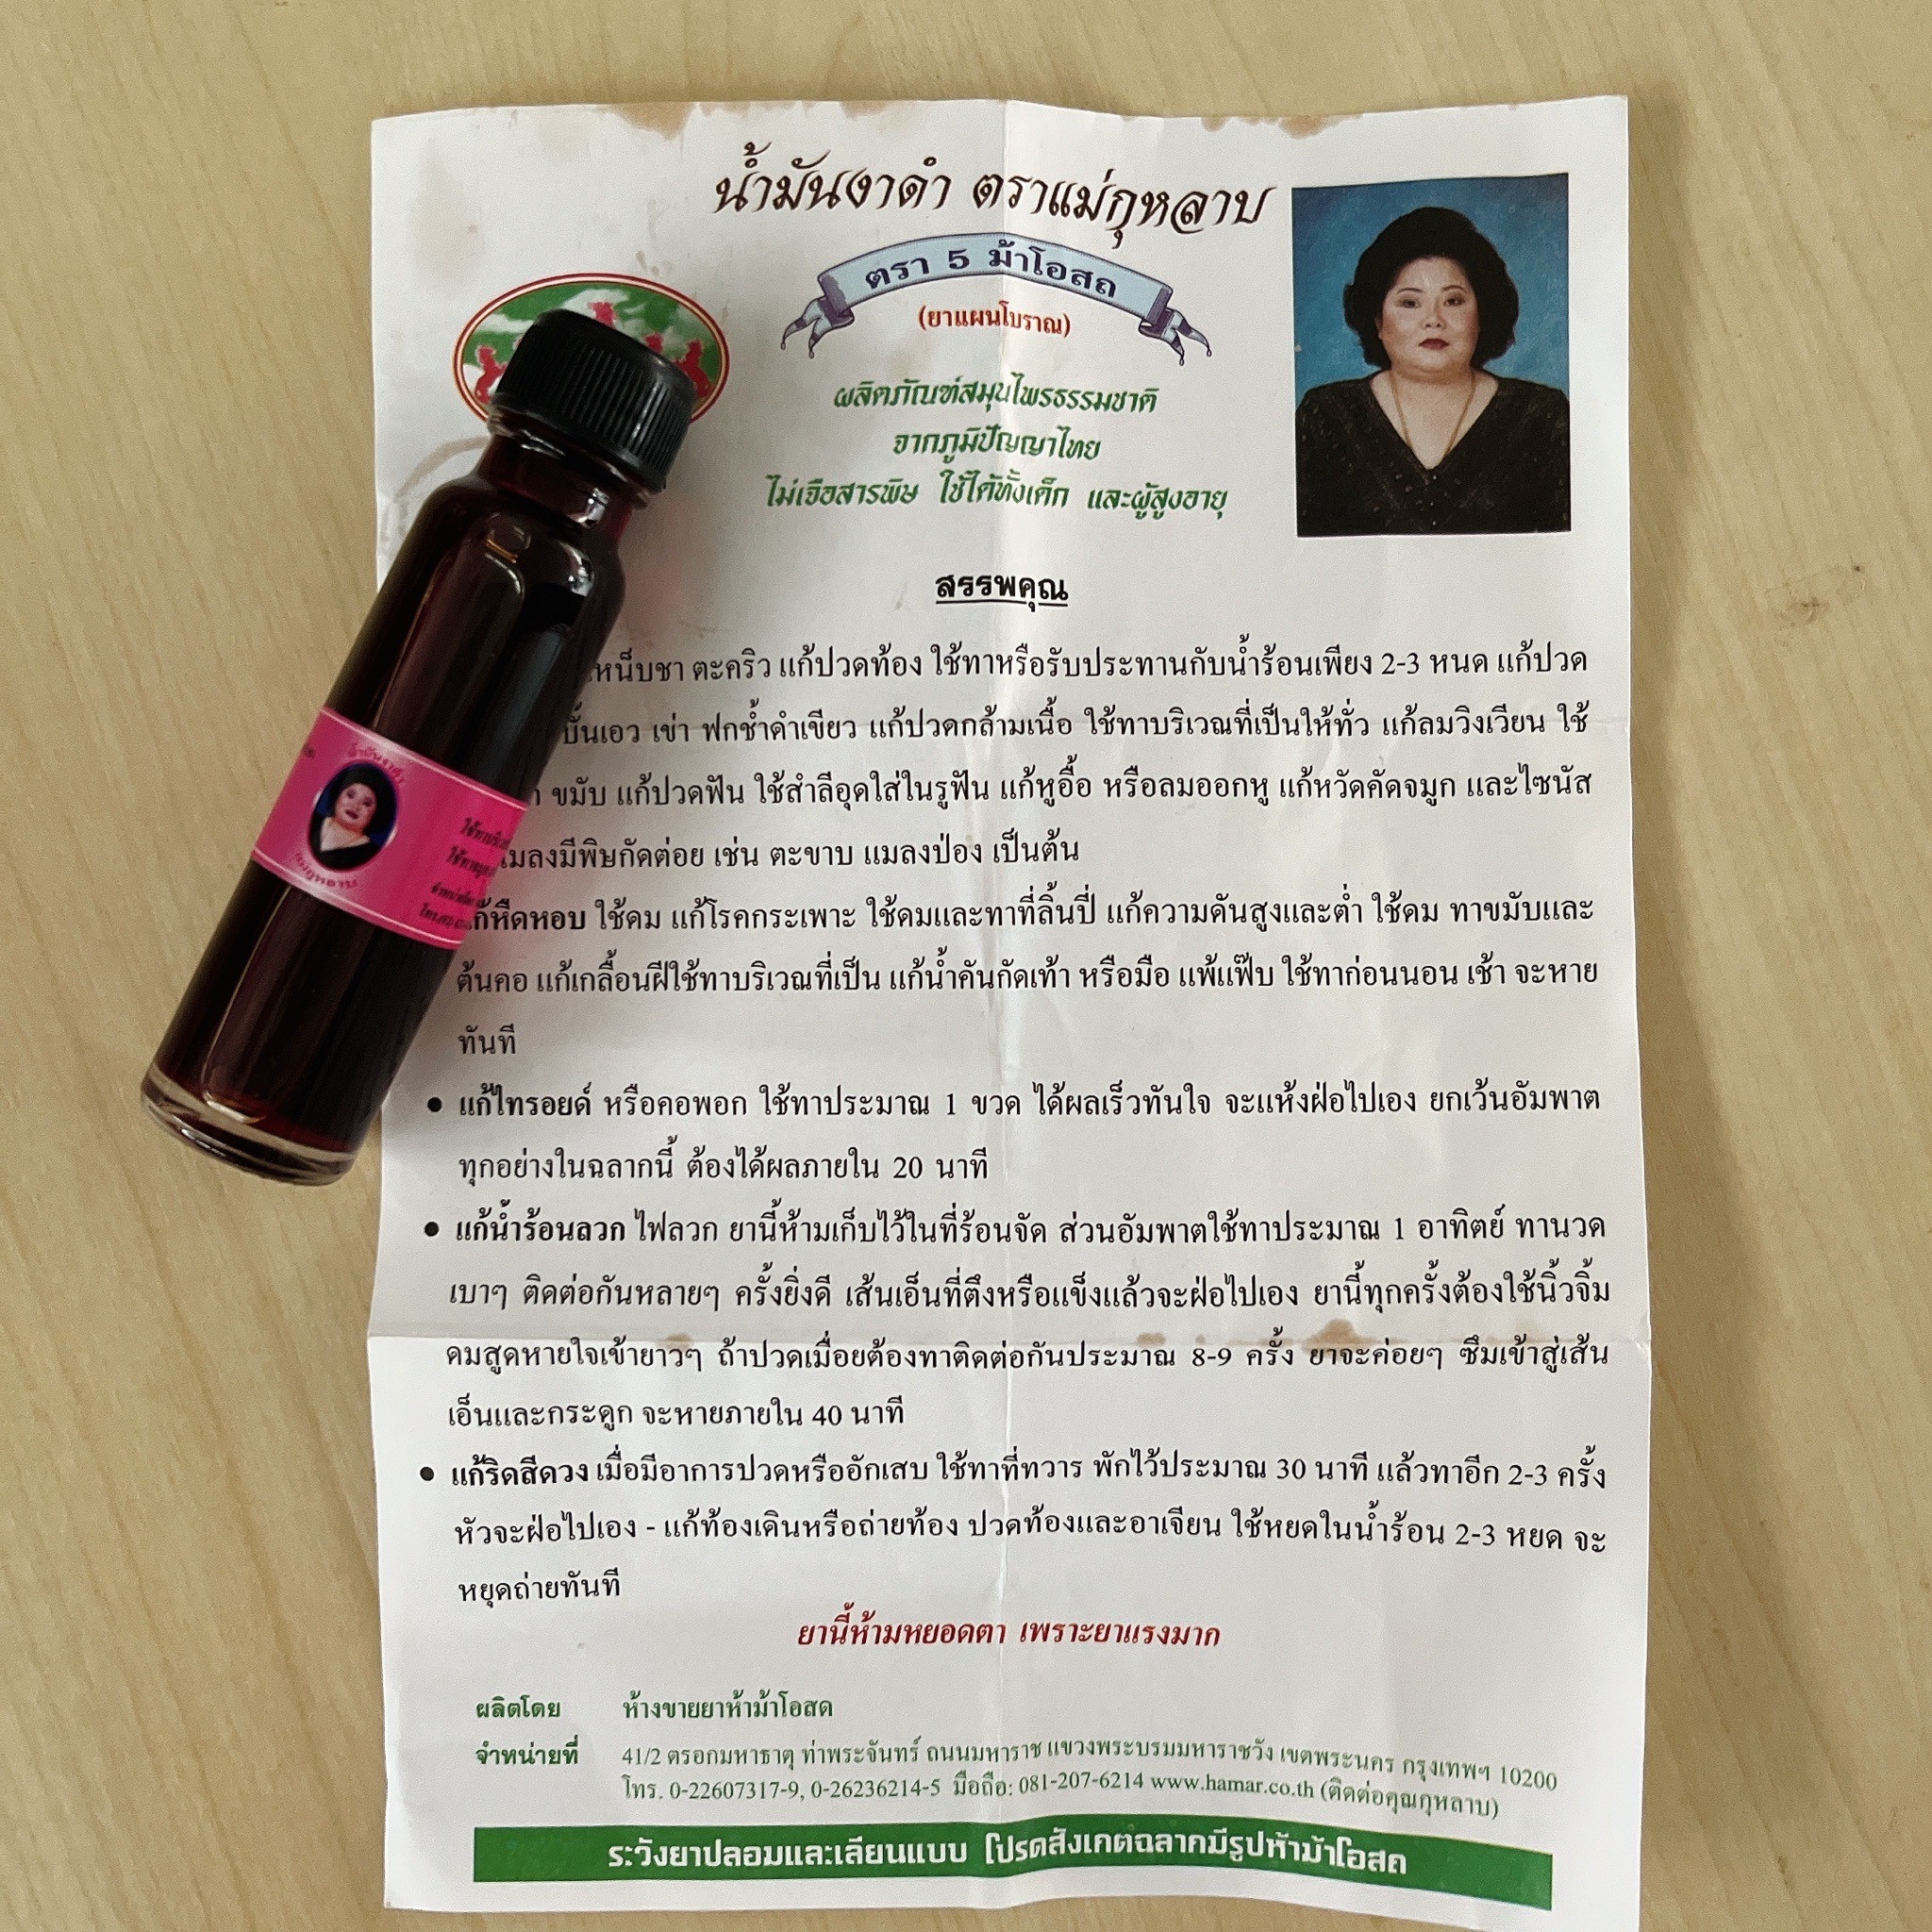 น้ำมันงาดำ ตราแม่กุหลาบ
ตรา 5 ม้าโอสถ
(ยาแผนโบราณ)
ผลิตภัณฑ์สมุนไพรธรรมชาติ
จากภูมิปัญญาไทย
ไม่เจือสารพิษ ใช้ได้ทั้งเด็ก และผู้สูงอายุ
สรรพคุณ
เหน็บชา ตะคริว แก้ปวดท้อง ใช้ทาหรือรับประทานกับน้ำร้อนเพียง 2-3 หนด แก้ปวด
บั้นเอว เข่า ฟกช้ำดำเขียว แก้ปวดกล้ามเนื้อ ใช้ทาบริเวณที่เป็นให้ทั่ว แก้ลมวิงเวียน ใช้
ขมับ แก้ปวดฟัน ใช้สำลีอุดใส่ในรูฟัน แก้หูอื้อ หรือลมออกหู แก้หวัดคัดจมูก และไซนัส
แมลงมีพิษกัดต่อย เช่น ตะขาบ แมลงป่อง เป็นต้น
แก้หืดหอบ ใช้ดม แก้โรคกระเพาะ ใช้ดมและทาที่ลิ้นปี่ แก้ความดันสูงและต่ำ ใช้ดม ทาขมับและ
ต้นคอ แก้เกลื้อนฝีใช้ทาบริเวณที่เป็น แก้น้ำคันกัดเท้า หรือมือ แพ้แฟ๊บ ใช้ทาก่อนนอน เช้า จะหาย
ทันที
• แก้ไทรอยด์ หรือคอพอก ใช้ทาประมาณ 1 ขวด ได้ผลเร็วทันใจ จะแห้งฝ่อไปเอง ยกเว้นอัมพาต
ทุกอย่างในฉลากนี้ ต้องได้ผลภายใน 20 นาที
• แก้น้ำร้อนลวก ไฟลวก ยานี้ห้ามเก็บไว้ในที่ร้อนจัด ส่วนอัมพาตใช้ทาประมาณ 1 อาทิตย์ ทานวด
เบาๆ ติดต่อกันหลายๆ ครั้งยิ่งดี เส้นเอ็นที่ตึงหรือแข็งแล้วจะฝ่อไปเอง ยานี้ทุกครั้งต้องใช้นิ้วจิ้ม
ดมสูดหายใจเข้ายาวๆ ถ้าปวดเมื่อยต้องทาติดต่อกันประมาณ 8-9 ครั้ง ยาจะค่อยๆ ซึมเข้าสู่เส้น
เอ็นและกระดูก จะหายภายใน 40 นาที
• แก้ริดสีดวง เมื่อมีอาการปวดหรืออักเสบ ใช้ทาที่ทวาร พักไว้ประมาณ 30 นาที แล้วทาอีก 2-3 ครั้ง
หัวจะฝ่อไปเอง - แก้ท้องเดินหรือถ่ายท้อง ปวดท้องและอาเจียน ใช้หยดในน้ำร้อน 2-3 หยด จะ
หยุดถ่ายทันที
ยานี้ห้ามหยอดตา เพราะยาแรงมาก
ผลิตโดย ห้างขายยาห้าม้าโอสถ
จำหน่ายที่ 41/2 ตรอกมหาธาตุ ท่าพระจันทร์ ถนนมหาราช แขวงพระบรมมหาราชวัง เขตพระนคร กรุงเทพฯ 10200
โทร. 0-22607317-9, 0-26236214-5 มือถือ: 081-207-6214 www.hamar.co.th (ติดต่อคุณกุหลาบ)
ระวังยาปลอมและเลียนแบบ โปรดสังเกตฉลากมีรูปห้าม้าโอสถ
น้ำมันงาดำ
แม่กุหลาบ